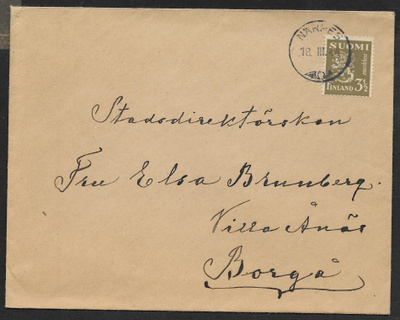 NÄRPES
18. III.
SUOMI
FINLAND 3½
Stadsdirektörskan
Fru Elsa Brunberg.
Villa Ånäs
Borgå